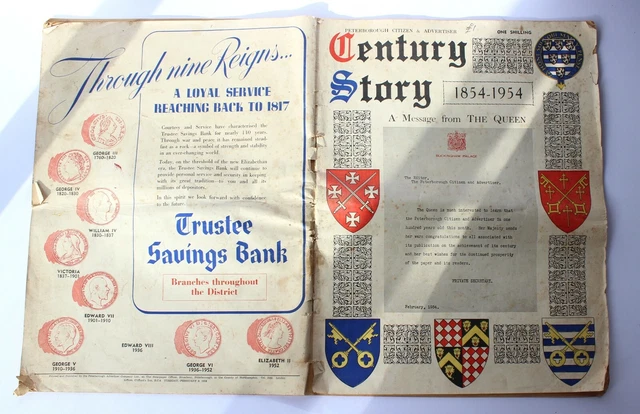 Through nine Reigns...
A LOYAL SERVICE
REACHING BACK TO 1817
Courtesy and Service have characterised the
Trustee Savings Bank for nearly 140 years.
Through war and peace, it has remained stead-
fast as a rock—a symbol of strength and stability
in an ever-changing world.
Today, on the threshold of the new Elizabethan
era, the Trustee Savings Bank will continue to
provide personal service and security, in keeping
with its great tradition to you and all its
millions of depositors.
In this spirit we look forward with confidence
to the future.
Trustee
Savings Bank
Branches throughout
the District
GEORGE III
1760-1820
GEORGE IV
1820-1830
WILLIAM IV
1830-1837
VICTORIA
1837-1901
EDWARD VII
1901-1910
GEORGE V
1910-1936
EDWARD VIII
1936
GEORGE VI
1936-1952
ELIZABETH II
1952
PETERBOROUGH CITIZEN & ADVERTISER
£1
ONE SHILLING
Century
Story
1854-1954
A Message from THE QUEEN
BUCKINGHAM PALACE
The Editor,
The Peterborough Citizen and Advertiser.
The Queen is much interested to learn that
the Peterborough Citizen and Advertiser is one
hundred years old this week. Her Majesty sends
her warm congratulations to all associated with
its publication on the achievement of its century
and her best wishes for the continued prosperity
of the paper and its readers.
PRIVATE SECRETARY.
February, 1954.